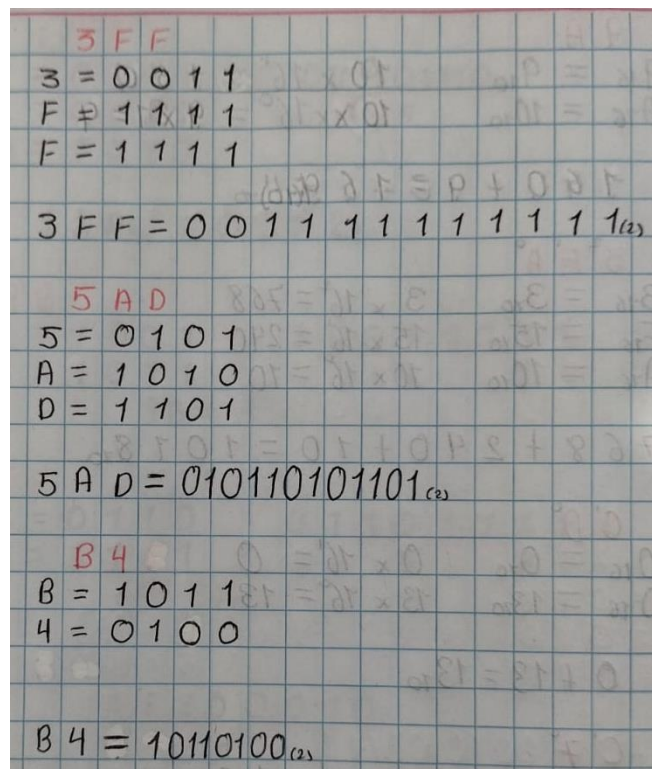 3 F F
3 = 0 0 1 1
F = 1 1 1 1
F = 1 1 1 1
3 F F = 0 0 1 1 1 1 1 1 1 1 1 1(2)
5 A D
5 = 0 1 0 1
A = 1 0 1 0
D = 1 1 0 1
5 A D = 010110101101(2)
B 4
B = 1 0 1 1
4 = 0 1 0 0
B 4 = 10110100(2)